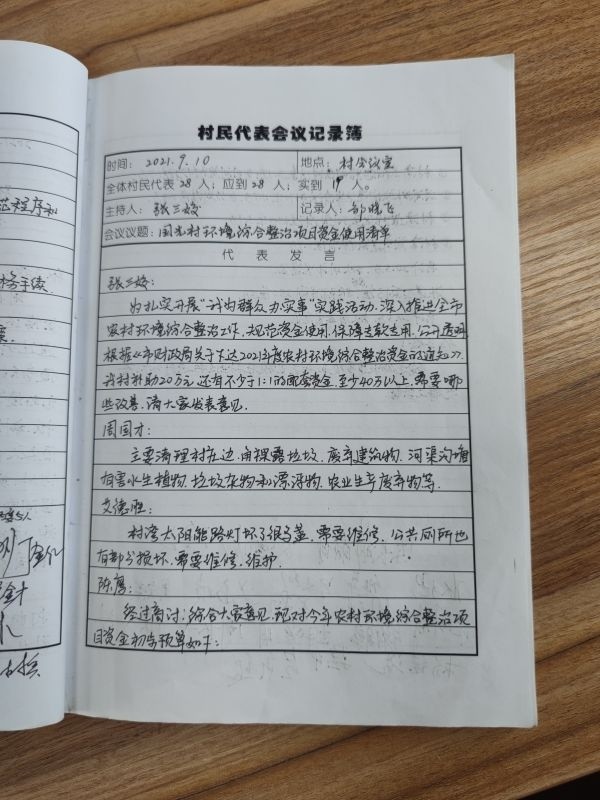 村民代表会议记录簿
时间： 2021.9.10 地点：村会议室
全体村民代表28人；应到28人；实到19人。
主持人：张三姣 记录人：邹晓飞
会议议题：国光村环境综合整治项目资金使用清单
代表发言
张三姣：
为扎实开展“我为群众办实事”实践活动，深入推进全市
农村环境综合整治工作，规范资金使用，保障专款专用，公开透明
根据《市财政局关于下达2021年度农村环境综合整治资金的通知》，
我村补助20万元，还有不少于1:1的配套资金，至少40万以上，需要哪
些改善，请大家发表意见，
周国才：
主要清理村庄边、角裸露垃圾、废弃建筑物、河渠沟塘
有害水生植物、垃圾杂物和漂浮物、农业生产废弃物等.
艾德胜：
村湾太阳能路灯坏了很多盏，需要维修，公共厕所也
有部分损坏，需要维修、维护.
陈鹰：
经过商讨：综合大家意见，现对今年农村环境综合整治项
目资金初步预算如下：
范程序和